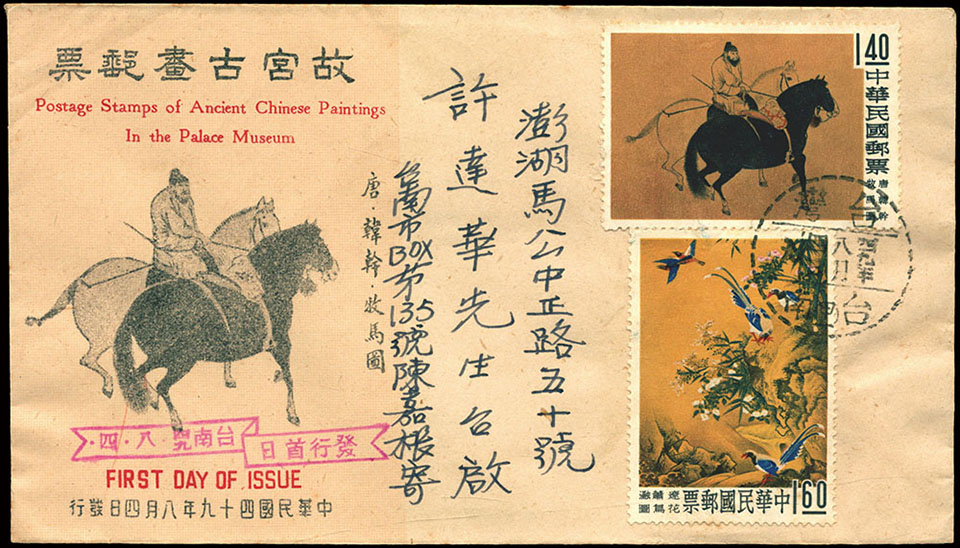 故宮古畫郵票
Postage Stamps of Ancient Chinese Paintings
In the Palace Museum
唐·韓幹·牧馬圖
發行首日
台南 ·八·四·
FIRST DAY OF ISSUE
中華民國四十九年八月四日發行
澎湖馬公中正路五十號
許達華先生台啟
台南市BOX第135號陳嘉寄
1.40
中華民國郵票
唐韓幹
牧馬圖
台灣
台南
中華民國郵票
1.60